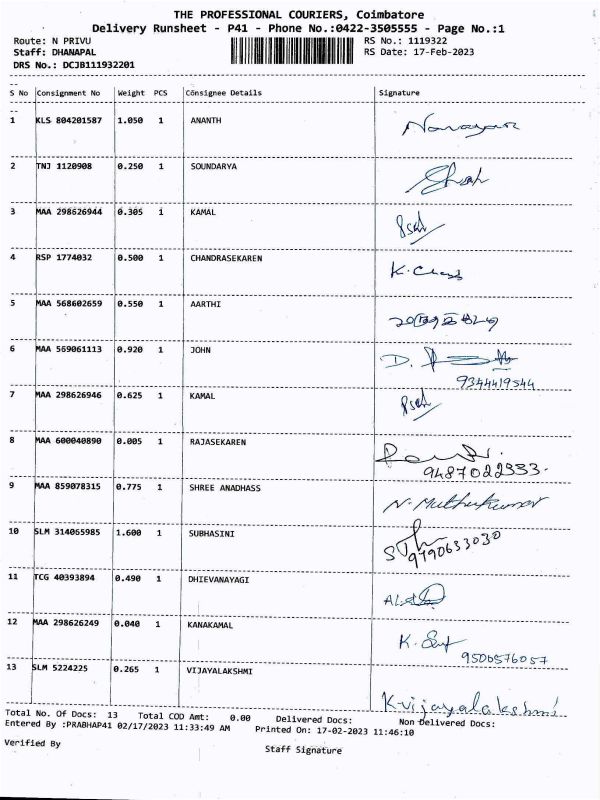 THE PROFESSIONAL COURIERS, Coimbatore
Delivery Runsheet - P41 - Phone No.:0422-3505555 - Page No.:1
Route: N PRIVU RS No.: 1119322
Staff: DHANAPAL RS Date: 17-Feb-2023
DRS No.: DCJB111932201
S No Consignment No Weight PCS Consignee Details Signature
1 KLS 804201587 1.050 1 ANANTH Narayan
2 TNJ 1120908 0.250 1 SOUNDARYA
3 MAA 298626944 0.305 1 KAMAL
4 RSP 1774032 0.500 1 CHANDRASEKAREN
5 MAA 568602659 0.550 1 AARTHI
6 MAA 569061113 0.920 1 JOHN
9344419544
7 MAA 298626946 0.625 1 KAMAL
8 MAA 600040890 0.005 1 RAJASEKAREN
9487022333.
9 MAA 859078315 0.775 1 SHREE ANADHASS N. Muthukumar
10 SLM 314065985 1.600 1 SUBHASINI
9790633030
11 TCG 40393894 0.490 1 DHIEVANAYAGI
12 MAA 298626249 0.040 1 KANAKAMAL
9506576057
13 SLM 5224225 0.265 1 VIJAYALAKSHMI
K.vijayalakshmi
Total No. Of Docs: 13 Total COD Amt: 0.00 Delivered Docs: Non Delivered Docs:
Entered By :PRABHAP41 02/17/2023 11:33:49 AM Printed On: 17-02-2023 11:46:10
Verified By Staff Signature